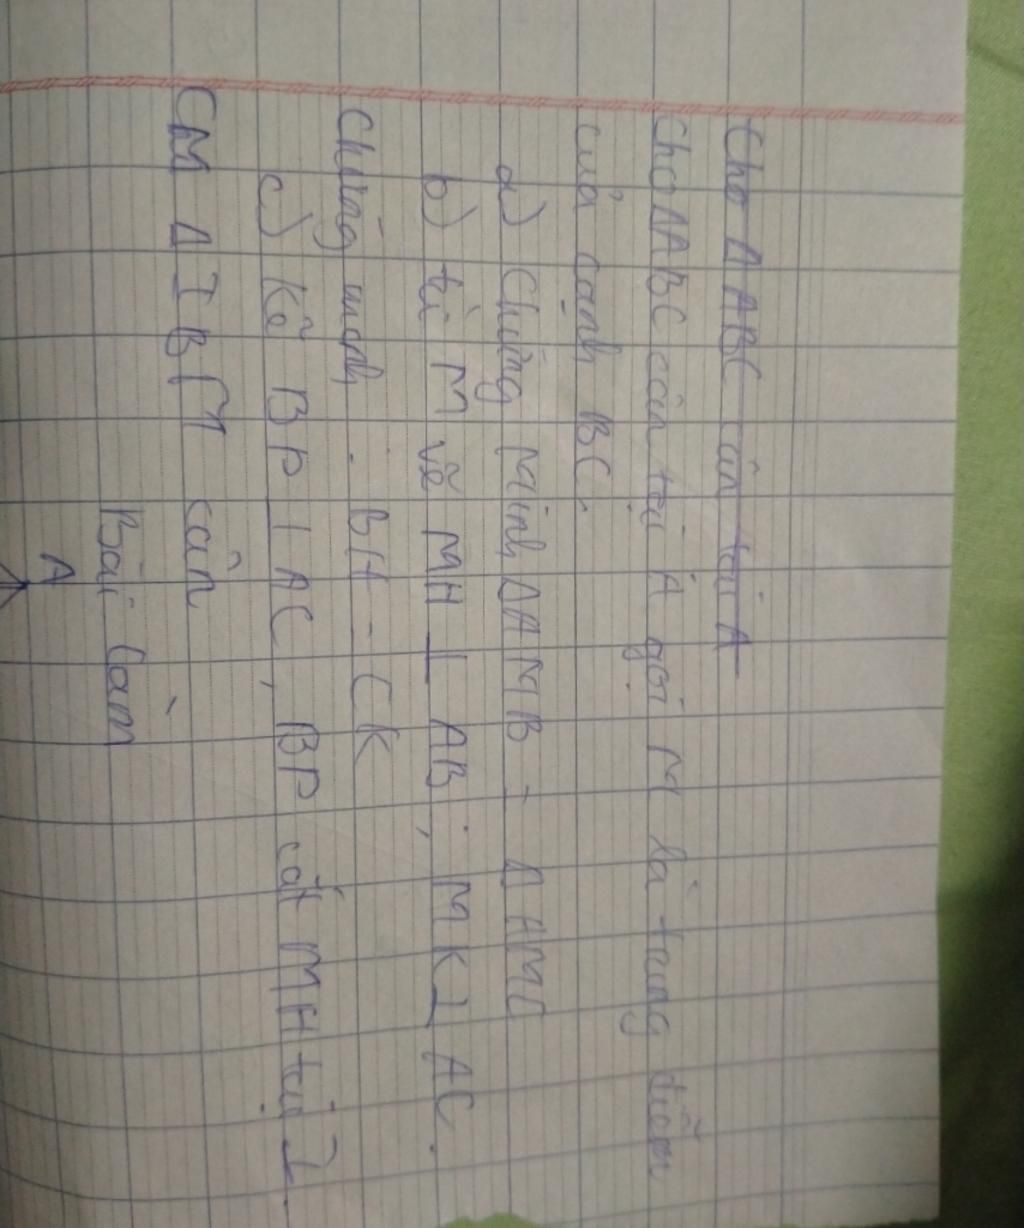 Cho Δ ABC cân tại A
Cho ΔABC cân tại A gọi M là trung điểm
của cạnh BC.
a) Chứng Minh ΔAMB = Δ AMC
b) từ M vẽ MH ⊥ AB; MK ⊥ AC.
Chứng minh . BH = CK
c) Kẻ BP ⊥ AC, BP cắt MH tại I.
CM Δ IBM cân
Bài làm
A